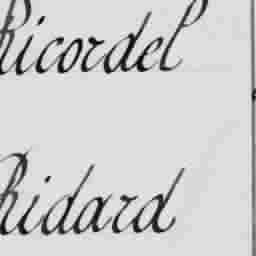 Ricordel
Ridard